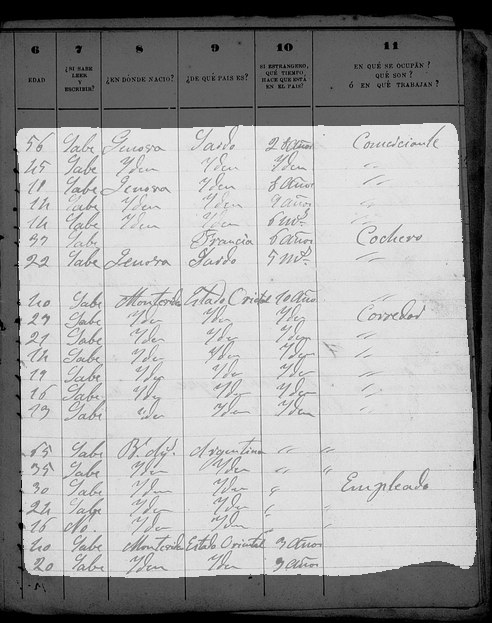 6 7 8 9 10 11
EDAD ¿SI SABE LEER Y ESCRIBIR? ¿EN DÓNDE NACIÓ? ¿DE QUÉ PAIS ES? SI ESTRANGERO, QUÉ TIEMPO HACE QUE ESTÁ EN EL PAIS? EN QUÉ SE OCUPÁN? QUÉ SON? Ó EN QUÉ TRABAJAN?
56 Sabe Genova Sardo 28 años Comerciante
45 Sabe Yden Yden Yden " "
18 Sabe Genova Yden 8 años " "
14 Sabe Yden Yden 8 años " "
14 Sabe Yden Yden 6 ms. " "
37 Sabe Francia 6 años Cochero
22 Sabe Genova Sardo 5 ms. " "
40 Sabe Montevdo Estado Oriental 10 años " "
27 Sabe Yden Yden Yden Corredor
21 Sabe Yden Yden Yden " "
14 Sabe Yden Yden Yden " "
19 Sabe Yden Yden Yden " "
16 Sabe Yden Yden Yden " "
13 Sabe Yden Yden Yden " "
65 Sabe Argentina " " "
35 Sabe Yden Yden " " "
30 Sabe Yden Yden " Empleado
24 Sabe Yden Yden " "
16 No. Yden Yden " "
40 Sabe Montevdo Estado Oriental 3 años
20 Sabe Yden Yden 3 años